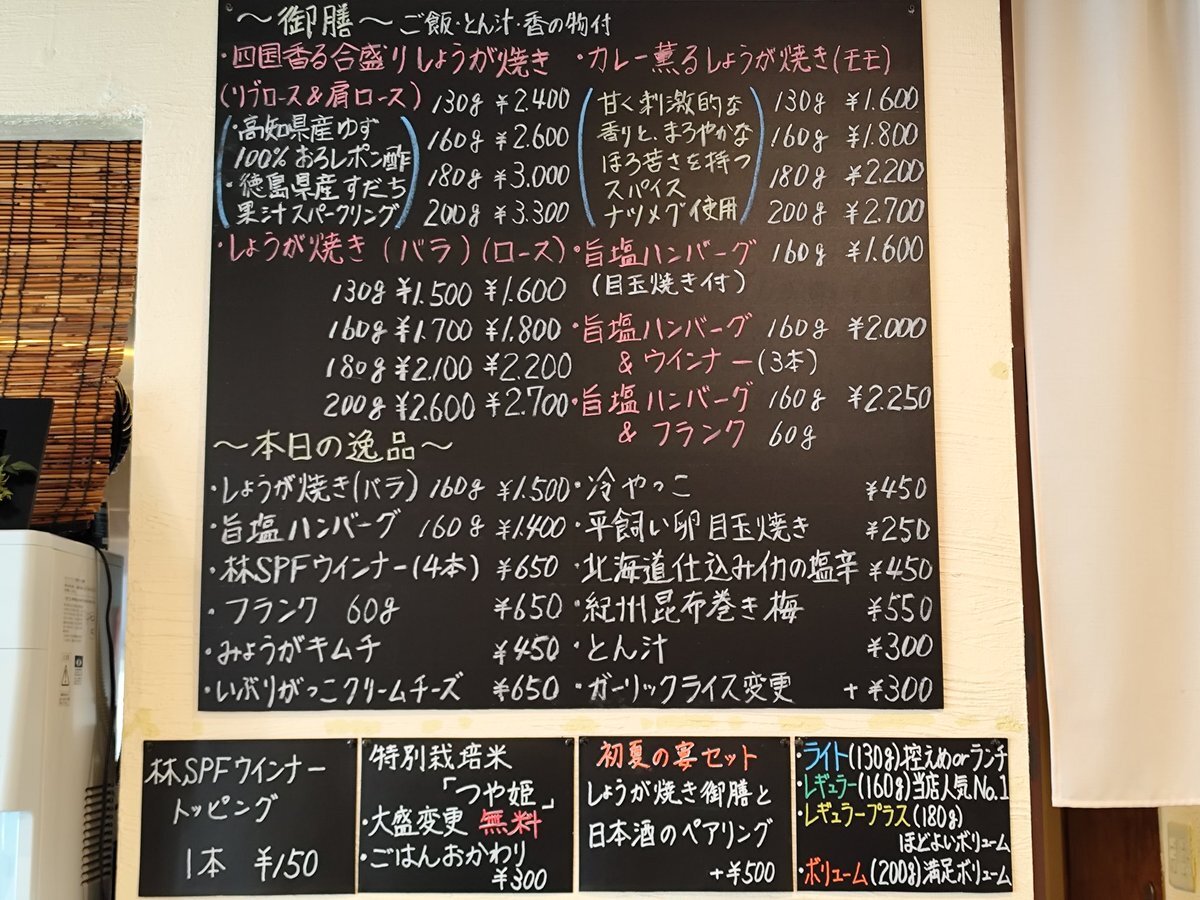 ～御膳～ ご飯・とん汁・香の物付
・四国香る合盛りしょうが焼き
(リブロース＆肩ロース) 130g ¥2.400
・高知県産ゆず 160g ¥2.600
100%おろしポン酢
・徳島県産すだち 180g ¥3.000
果汁スパークリング 200g ¥3.300
・しょうが焼き (バラ) (ロース)
130g ¥1.500 ¥1.600
160g ¥1.700 ¥1.800
180g ¥2.100 ¥2.200
200g ¥2.600 ¥2.700
・カレー薫るしょうが焼き(モモ)
甘く刺激的な 130g ¥1.600
香りと、まろやかな 160g ¥1.800
ほろ苦さを持つ
スパイス 180g ¥2.200
ナツメグ使用 200g ¥2.700
・旨塩ハンバーグ 160g ¥1.600
(目玉焼き付)
・旨塩ハンバーグ 160g ¥2.000
＆ウインナー(3本)
・旨塩ハンバーグ 160g ¥2.250
＆フランク 60g
～本日の逸品～
・しょうが焼き(バラ) 160g ¥1.500
・旨塩ハンバーグ 160g ¥1.400
・林SPFウインナー(4本) ¥650
・フランク 60g ¥650
・みょうがキムチ ¥450
・いぶりがっこクリームチーズ ¥650
・冷やっこ ¥450
・平飼い卵目玉焼き ¥250
・北海道仕込みイカの塩辛 ¥450
・紀州昆布巻き梅 ¥550
・とん汁 ¥300
・ガーリックライス変更 +¥300
林SPFウインナー
トッピング
1本 ¥150
特別栽培米
「つや姫」
・大盛変更 無料
・ごはんおかわり
¥300
初夏の宴セット
しょうが焼き御膳と
日本酒のペアリング
+¥500
・ライト(130g)控えめorランチ
・レギュラー(160g)当店人気No.1
・レギュラープラス(180g)
ほどよいボリューム
・ボリューム(200g)満足ボリューム